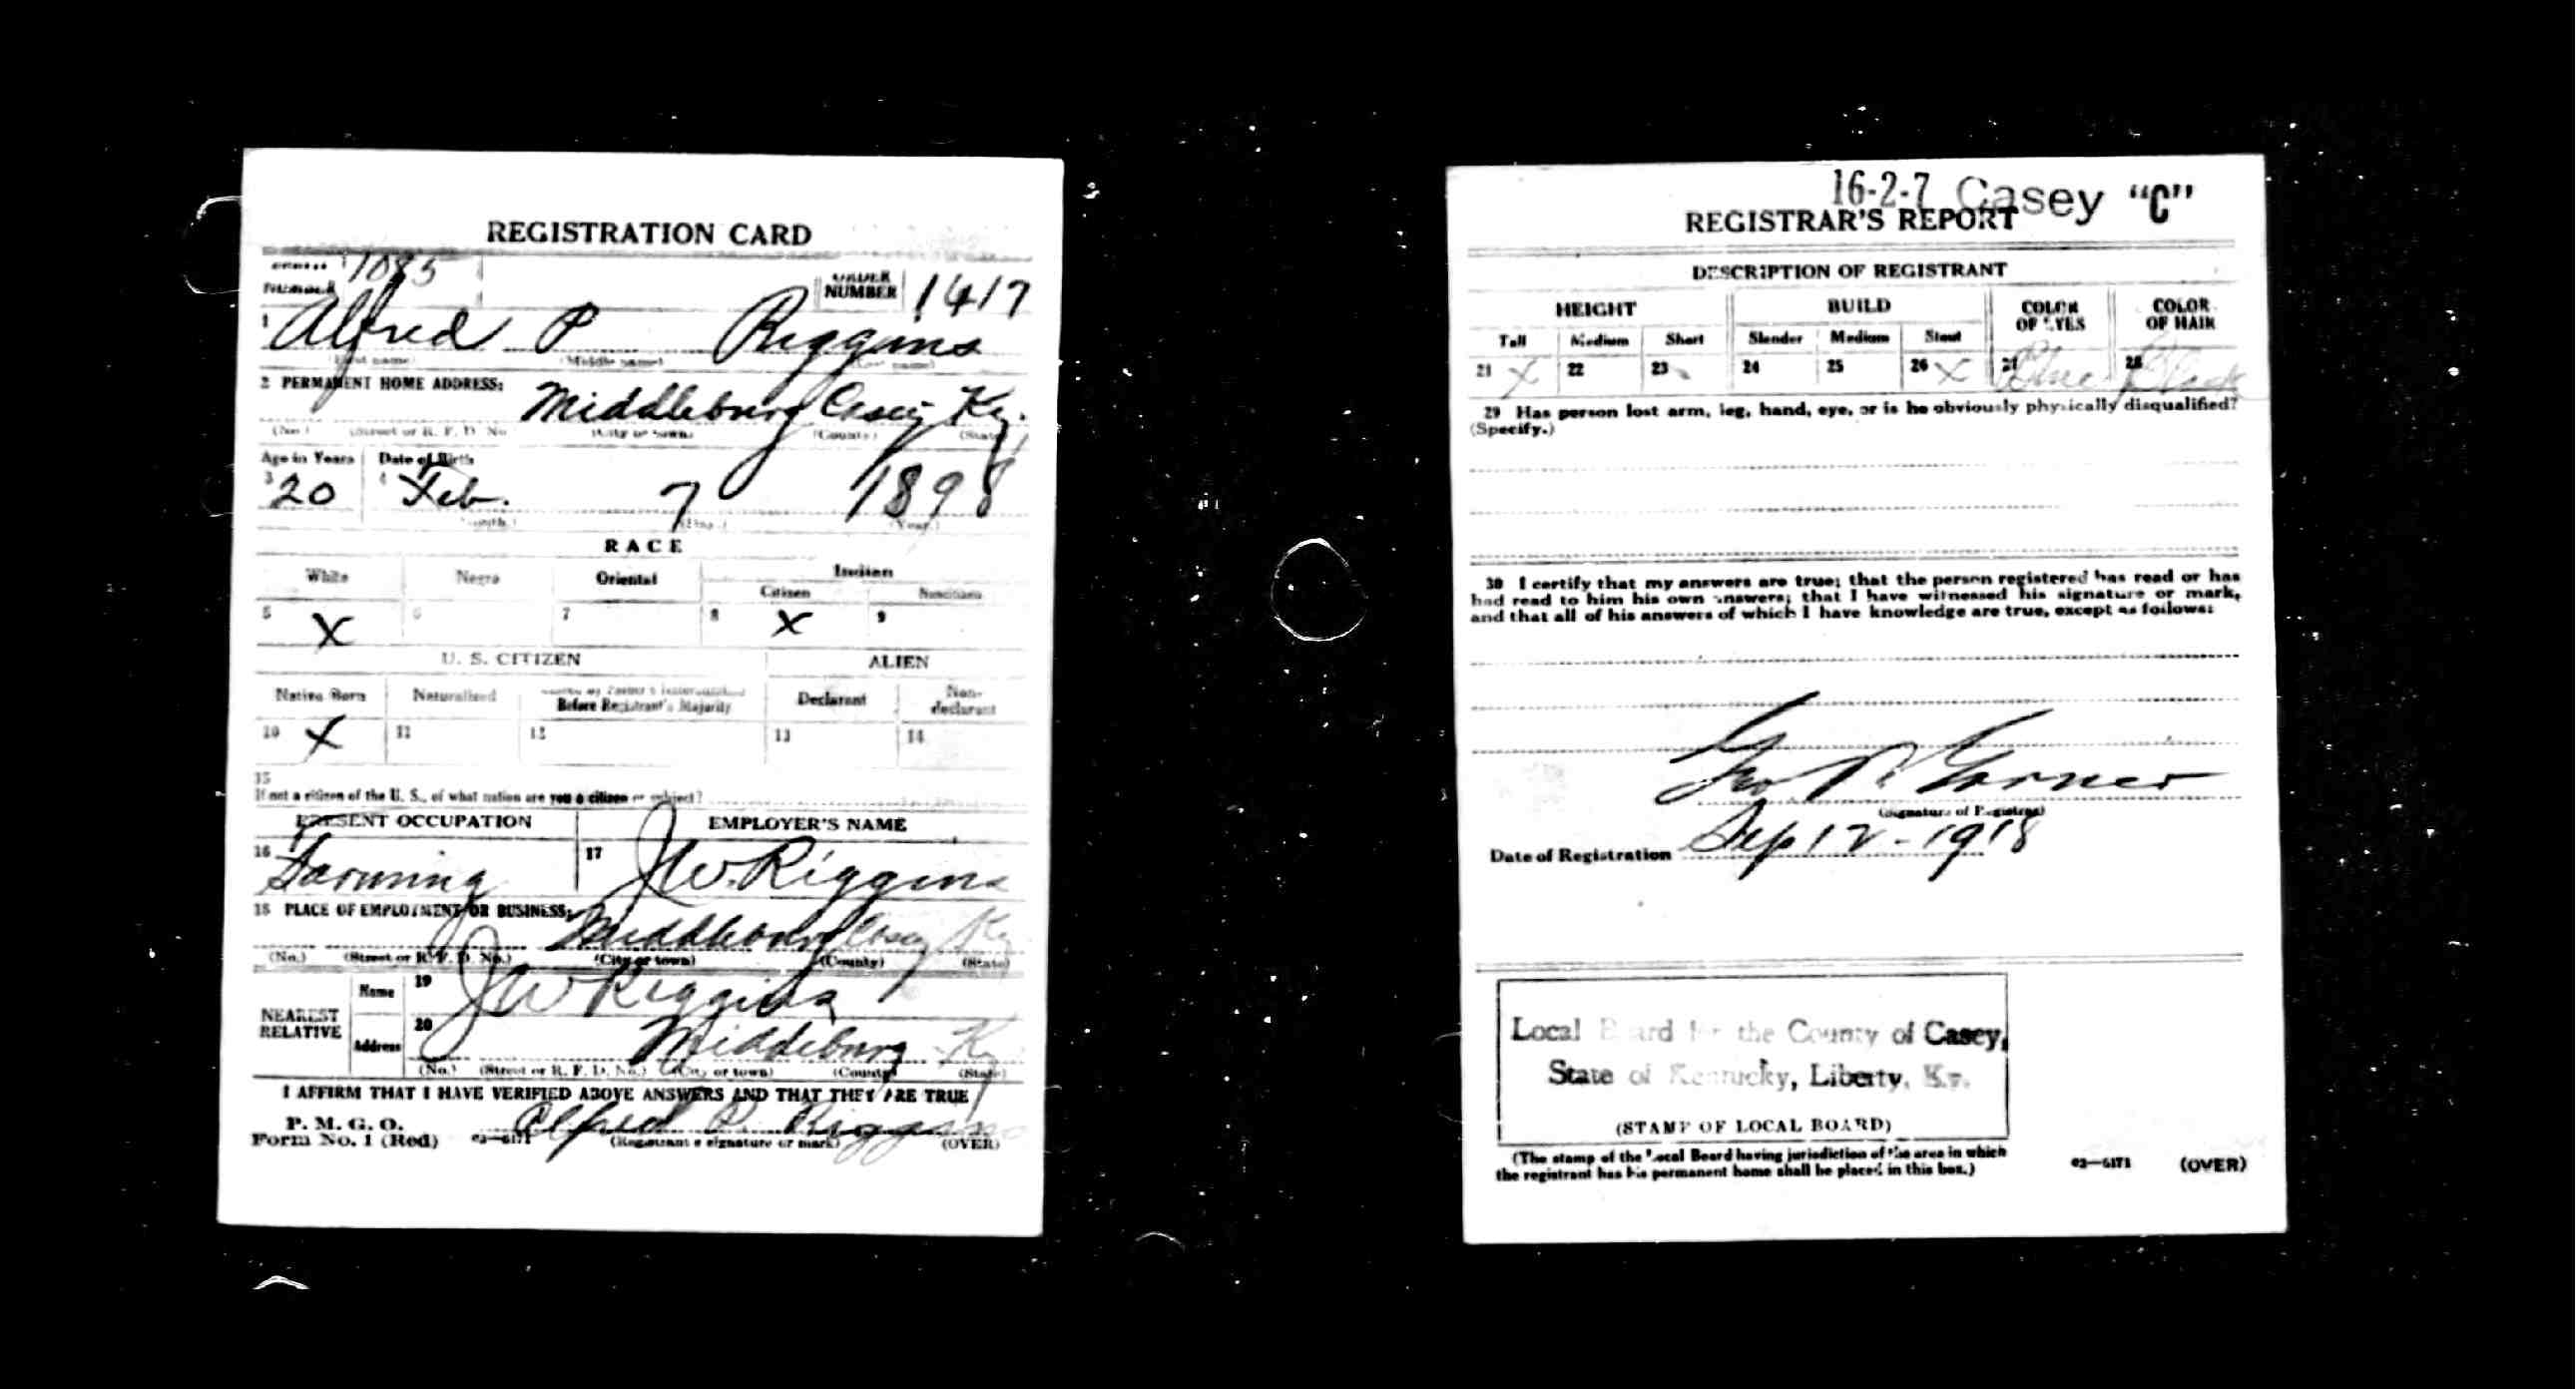 REGISTRATION CARD
1085
ORDER
NUMBER 1417
1 Alfred P Riggins
(First name) (Middle name) (Last name)
2 PERMANENT HOME ADDRESS:
Middleburg Casey Ky.
(No.) (Street or R. F. D. No (City or town) (County) (State)
Age in Years Date of Birth
3 20 4 Feb. 7 1898
(Month.) (Day.) (Year.)
RACE
White Negro Oriental Indian
Citizen Noncitizen
5 X 6 7 8 X 9
U. S. CITIZEN ALIEN
Native Born Naturalized Before Registrant's Majority Declarant Non-declarant
10 X 11 12 13 14
15
If not a citizen of the U. S., of what nation are you a citizen or subject?
PRESENT OCCUPATION EMPLOYER'S NAME
16 Farming 17 J W. Riggins
18 PLACE OF EMPLOYMENT OR BUSINESS:
Middleburg Casey Ky
(No.) (Street or R. F. D. No.) (City or town) (County) (State)
NEAREST RELATIVE
Name 19 J W Riggins
Address 20 Middleburg Ky
(No.) (Street or R. F. D. No.) (City or town) (County) (State)
I AFFIRM THAT I HAVE VERIFIED ABOVE ANSWERS AND THAT THEY ARE TRUE
P. M. G. O.
Form No. 1 (Red) 03—6171 Alfred P. Riggins
(Registrant's signature or mark) (OVER)
16-2-7 Casey "C"
REGISTRAR'S REPORT
DESCRIPTION OF REGISTRANT
HEIGHT BUILD COLOR OF EYES COLOR OF HAIR
Tall Medium Short Slender Medium Stout
21 X 22 23 24 25 26 X 27 Blue 28 Black
29 Has person lost arm, leg, hand, eye, or is he obviously physically disqualified?
(Specify.)
30 I certify that my answers are true; that the person registered has read or has
had read to him his own answers; that I have witnessed his signature or mark,
and that all of his answers of which I have knowledge are true, except as follows:
(Signature of Registrar)
Date of Registration Sep 12 - 1918
Local Board for the County of Casey,
State of Kentucky, Liberty, Ky.
(STAMP OF LOCAL BOARD)
(The stamp of the Local Board having jurisdiction of the area in which
the registrant has his permanent home shall be placed in this box.)
03—6171 (OVER)